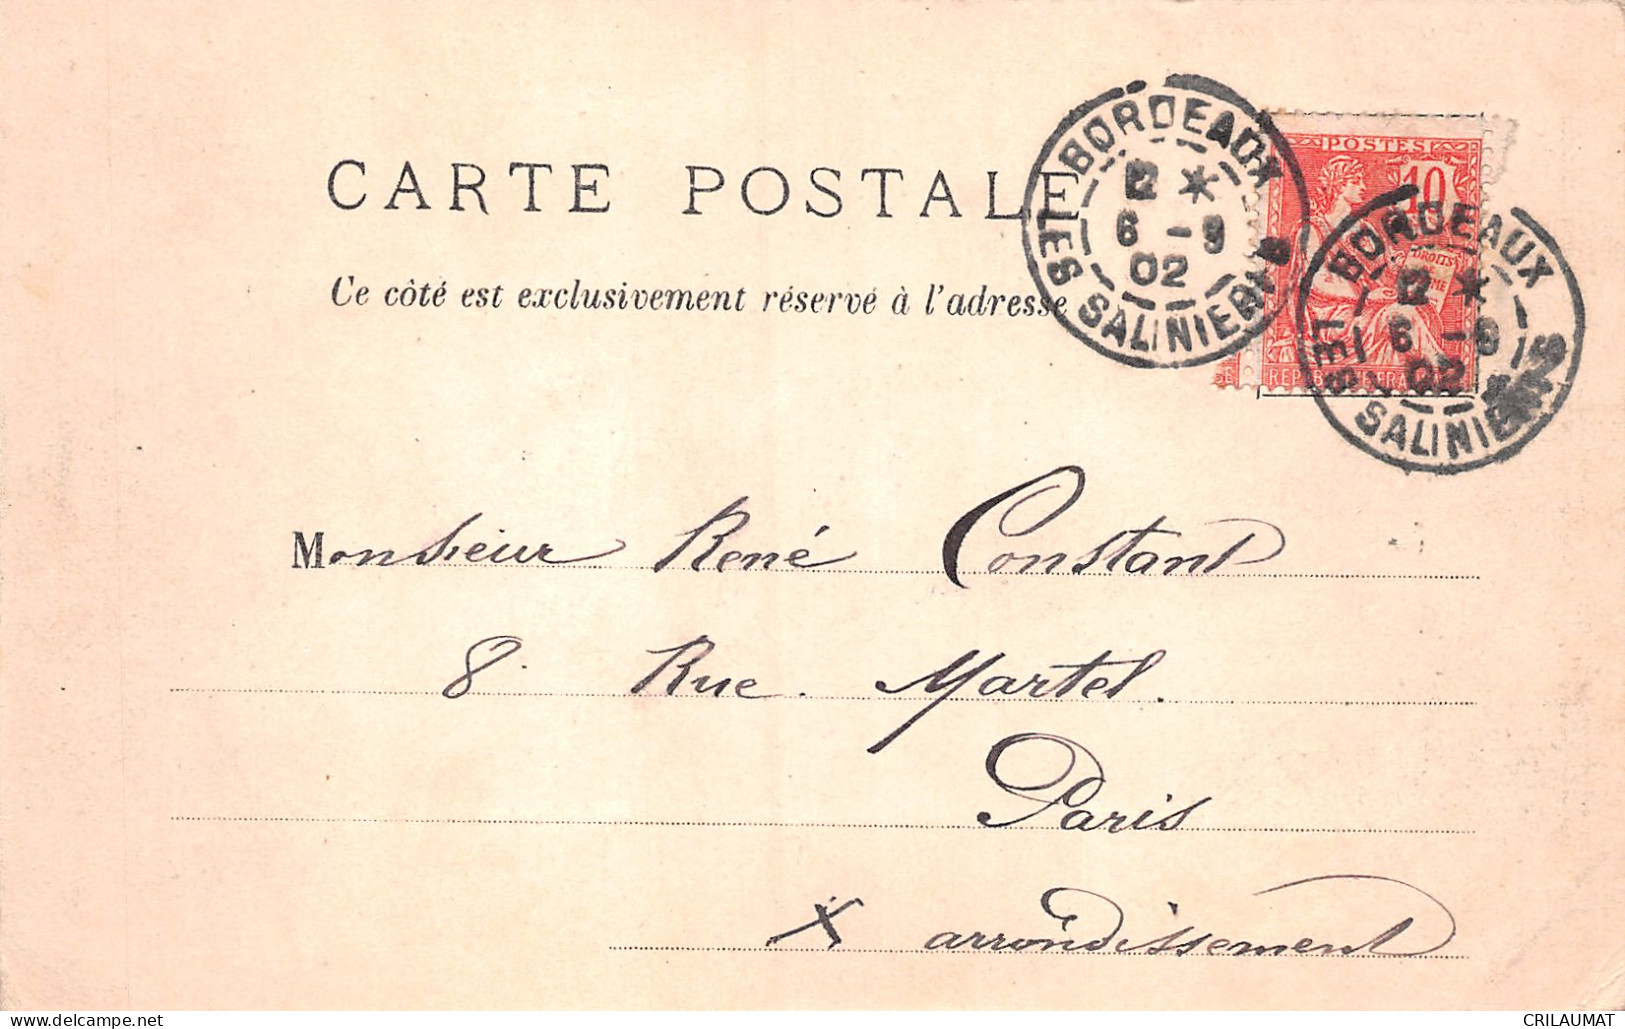 CARTE POSTALE
Ce côté est exclusivement réservé à l'adresse
BORDEAUX
12 *
6 - 9
02
LES SALINIERES
POSTES
10
DROITS
REPUBLIQUE FRANÇAISE
BORDEAUX
12 *
6 - 9
02
LES SALINIERES
Monsieur René Constant
8. Rue. Martel.
Paris
X arrondissement
CRILAUMAT